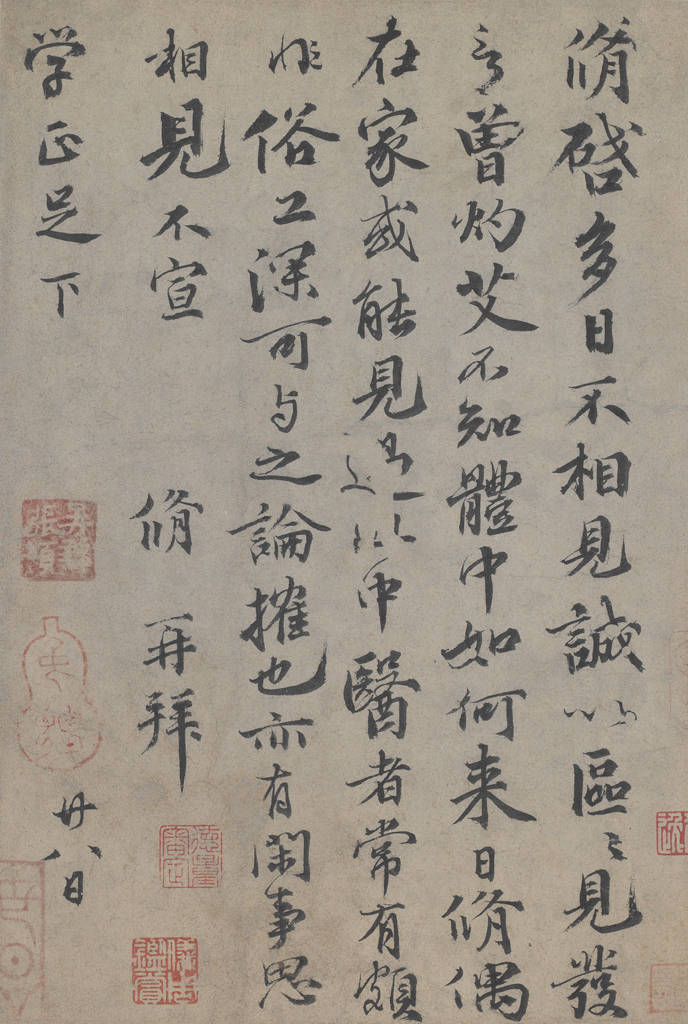 脩啓多日不相見誠以區〻見發
言曾灼艾不知體中如何来日脩偶
在家或能見過此中醫者常有頗
非俗工深可与之論搉也亦有閑事思
相見不宣
脩再拜
学正足下
廿八日
儀周鑑賞